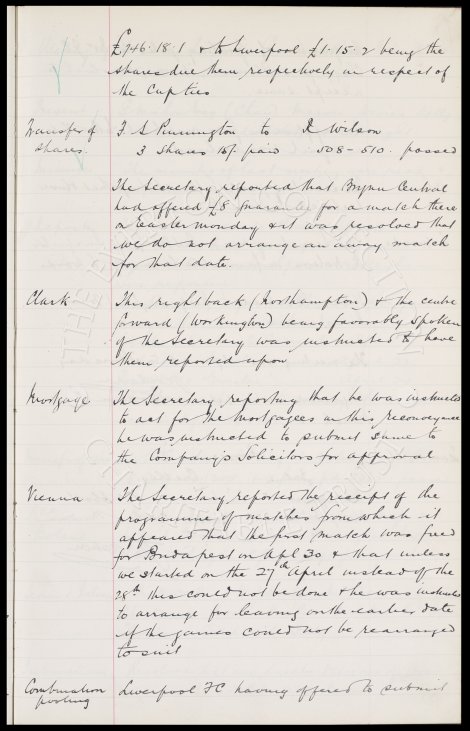 £746.18.1 & to Liverpool £1.15.2 being the
shares due them respectively in respect of
the Cup ties
Transfer of
shares.
F S Pinnington to D Wilson
3 shares 15/- paid 508-510. passed
The Secretary reported that Brynn Central
had offered £8 guarantee for a match there
on Easter Monday & it was resolved that
we do not arrange an away match
for that date.
Clark
This right back (Northampton) & the centre
forward (Workington) being favorably spoken
of the Secretary was instructed to have
them reported upon
Mortgage
The Secretary reporting that he was instructed
to act for the Mortgagees in this reconveyance
he was instructed to submit same to
the Company's Solicitors for approval
Vienna
The Secretary reported the receipt of the
programme of matches from which it
appeared that the first match was fixed
for Budapest on Apl 30 & that unless
we started on the 27th April instead of the
28th this could not be done & he was instructed
to arrange for leaving on the earlier date
if the games could not be rearranged
to suit
Combination
posting
Liverpool FC having offered to submit